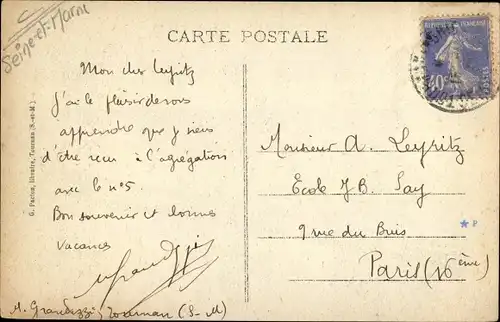 Seine-et-Marne
CARTE POSTALE
Mon cher Leyritz
J'ai le plaisir de vous
apprendre que je viens
d'être reçu à l'agrégation
avec le n°5.
Bon souvenir et bonnes
vacances
M. Grandezzi Tournan (S-M)
G. Pardon, libraire, Tournan (S.-et-M.)
40c
Monsieur A. Leyritz
Ecole J.B. Say
9 rue du Buis
Paris (16ème)